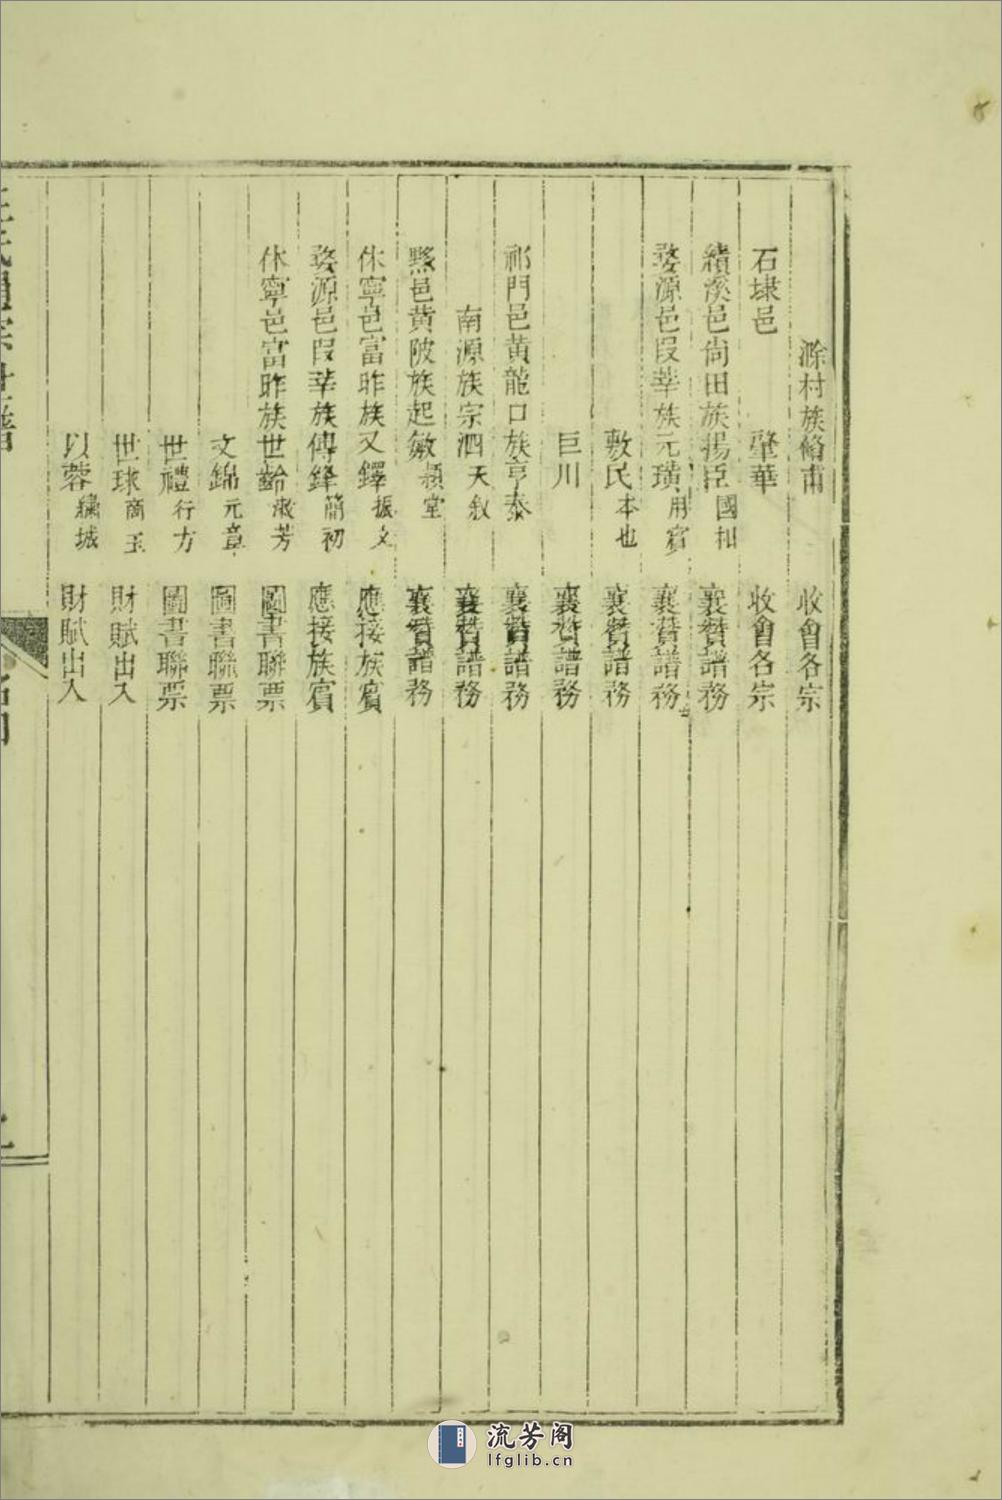 滁村族脩甫　收會各宗
石埭邑　肇華　收會各宗
績溪邑尙田族揚臣國和　襄贊譜務
婺源邑段莘族元璜用賓　襄贊譜務
敷民本也　襄贊譜務
巨川　襄贊譜務
祁門邑黃龍口族亨泰　襄贊譜務
南源族宗泗天敘　襄贊譜務
黟邑黃陂族起敏穎堂　襄贊譜務
休寧邑富昨族又鐸振文　應接族賓
婺源邑段莘族傳鋒簡初　應接族賓
休寧邑富昨族世齡淑芳　圖書聯票
文錦元章　圖書聯票
世禮行方　圖書聯票
世球商玉　財賦出入
以蓉繡城　財賦出入
流芳阁
lfglib.cn